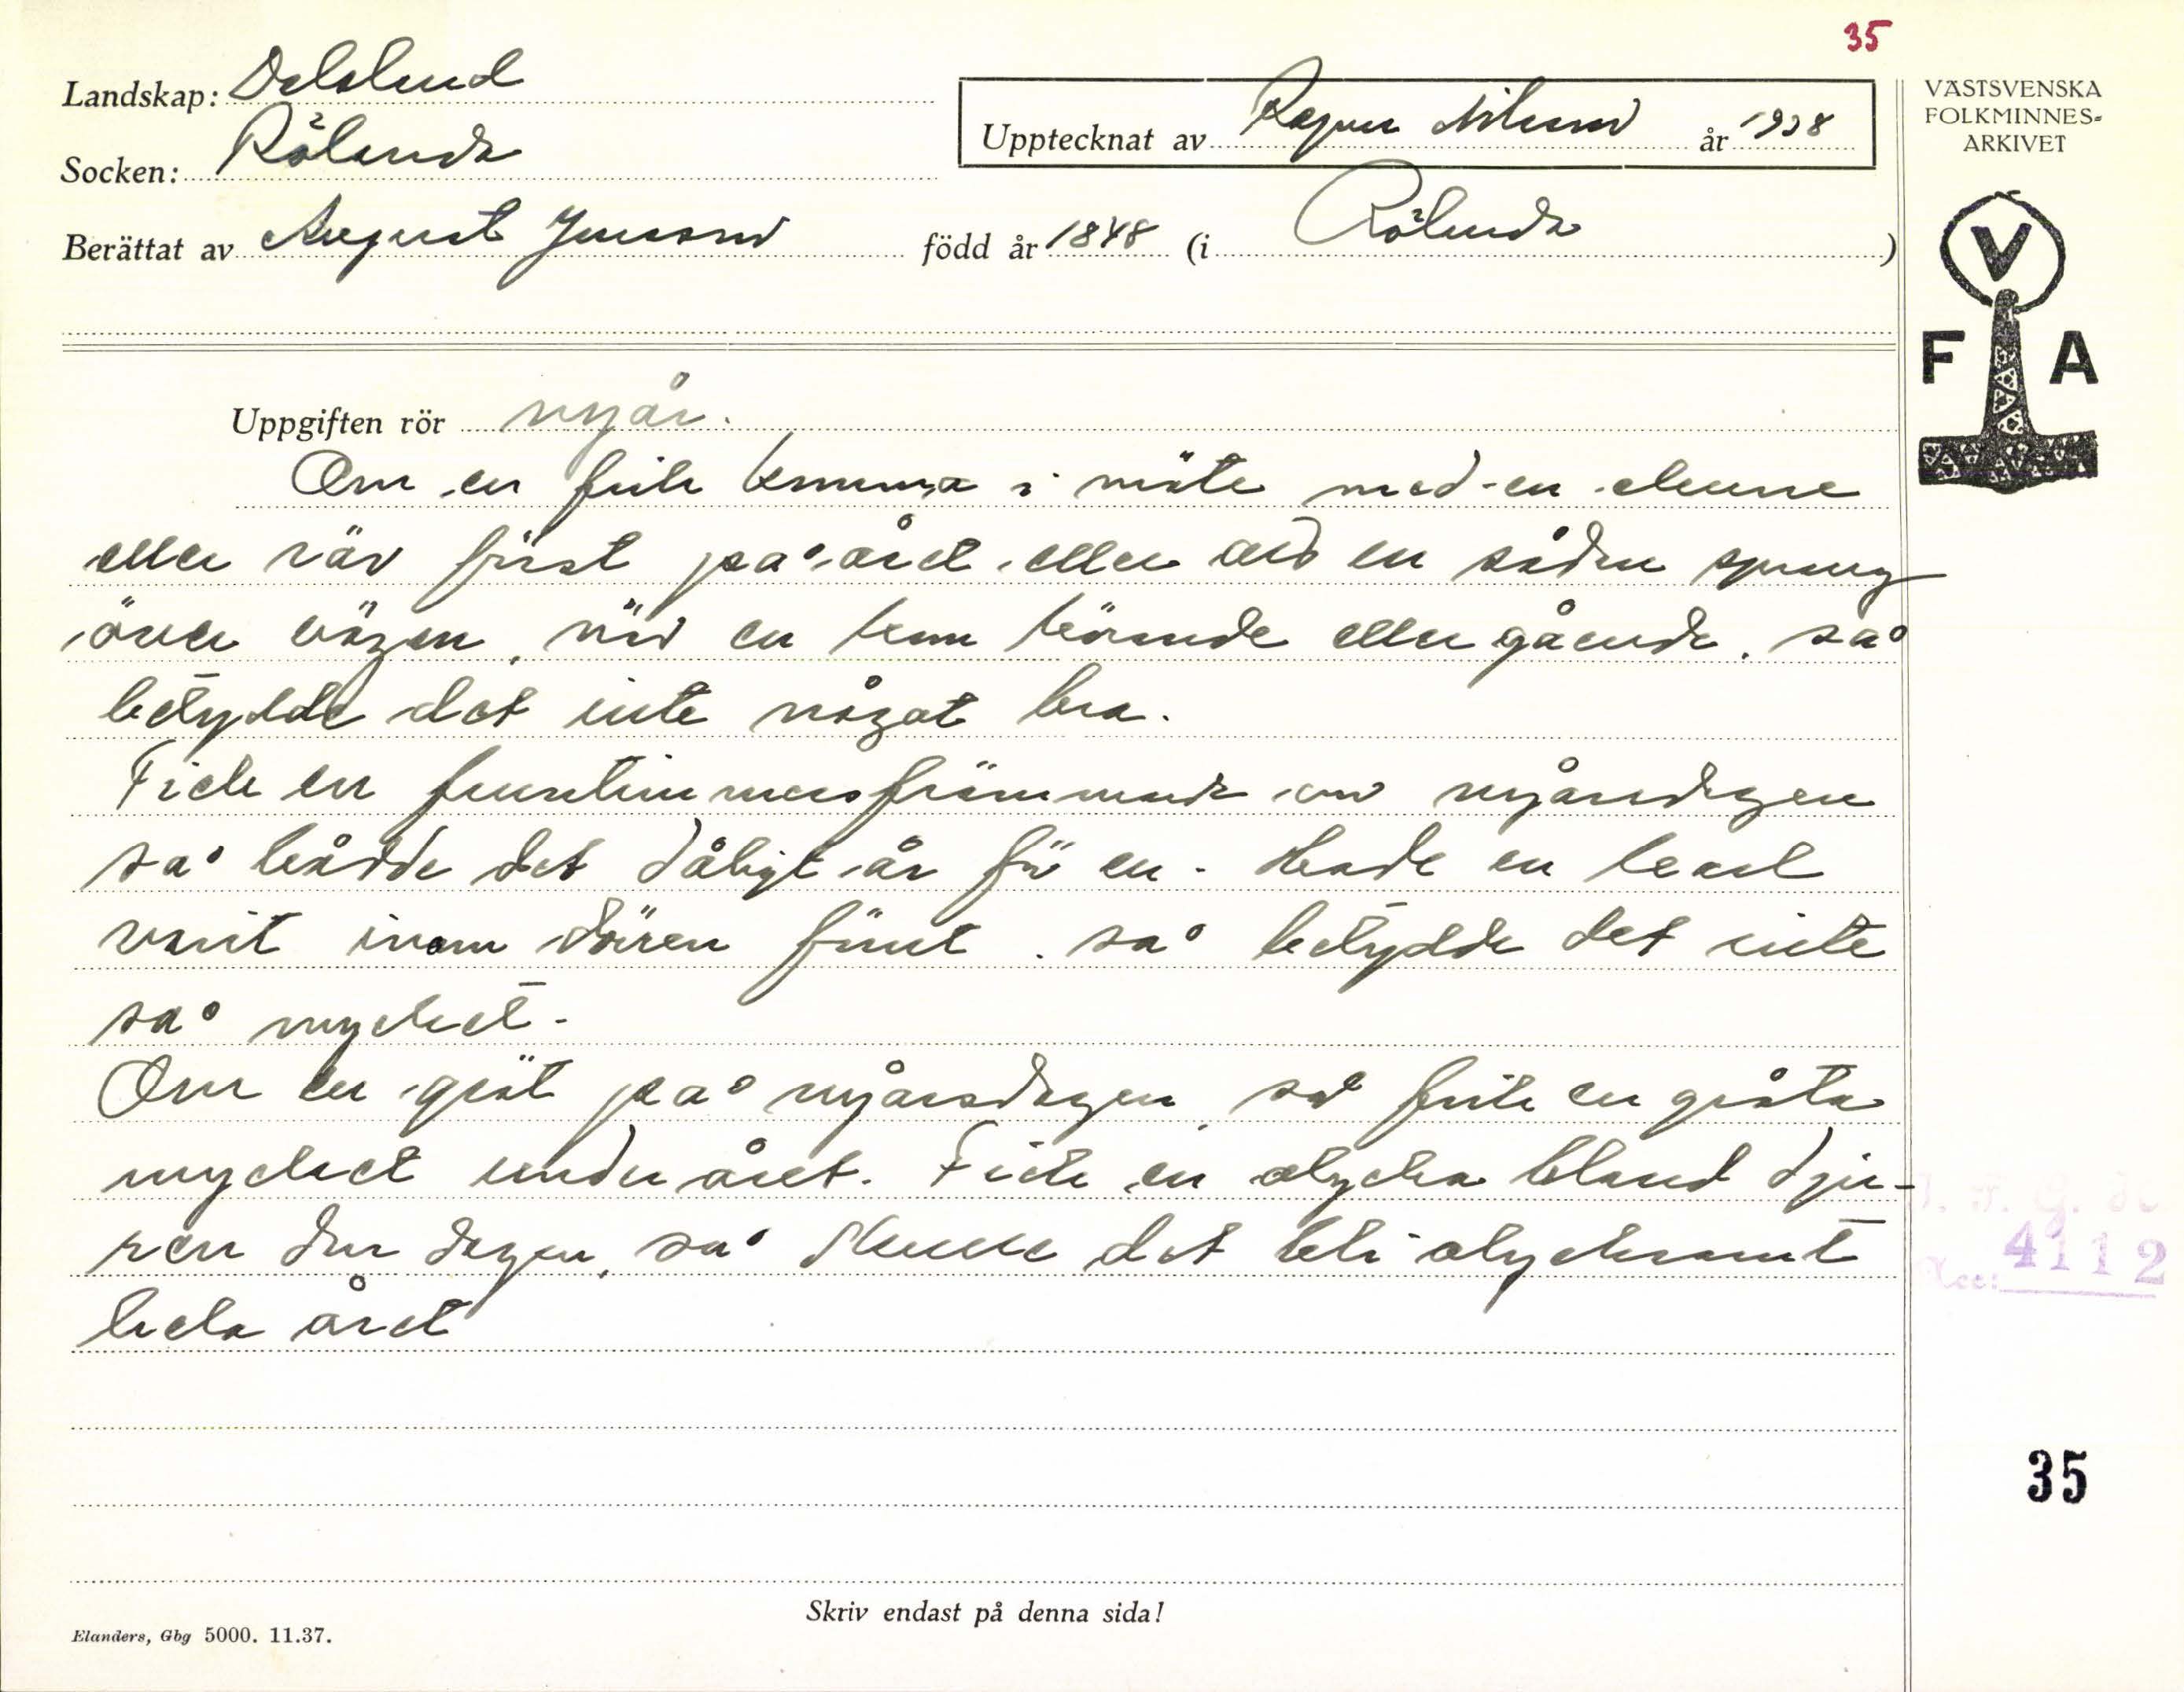 35
Landskap: Dalsland
Socken: Rölanda
Upptecknat av Ragnar Nilsson år 1938
Berättat av August Jonsson född år 1848 (i Rölanda)
VÄSTSVENSKA
FOLKMINNES=
ARKIVET
V
F A
Uppgiften rör nyår.
Om en fick komma i möte med en
eller räv först på året eller om en sådan sprang
över vägen, när en kom körande eller gående, så
betydde det inte något bra.
Fick en fruntimmersfrämmande om nyårsdagen
så bådde det dåligt år för en. Hade en karl
varit inom dören först, så betydde det inte
så mycket.
Om en grät på nyårsdagen, så fick en gråta
mycket under året. Fick en olycka bland dju-
ren den dagen, så skulle det bli olycksamt
hela året
Acc: 4112
35
Skriv endast på denna sida!
Elanders, Gbg 5000. 11.37.